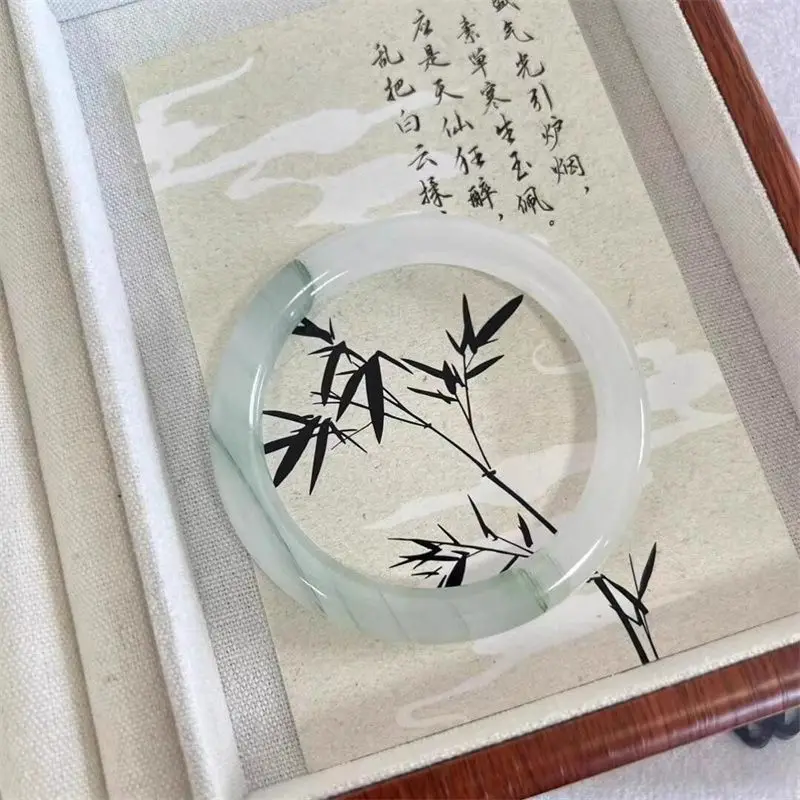 气光引炉烟，
素草寒生玉佩。
应是天仙狂醉，
乱把白云揉